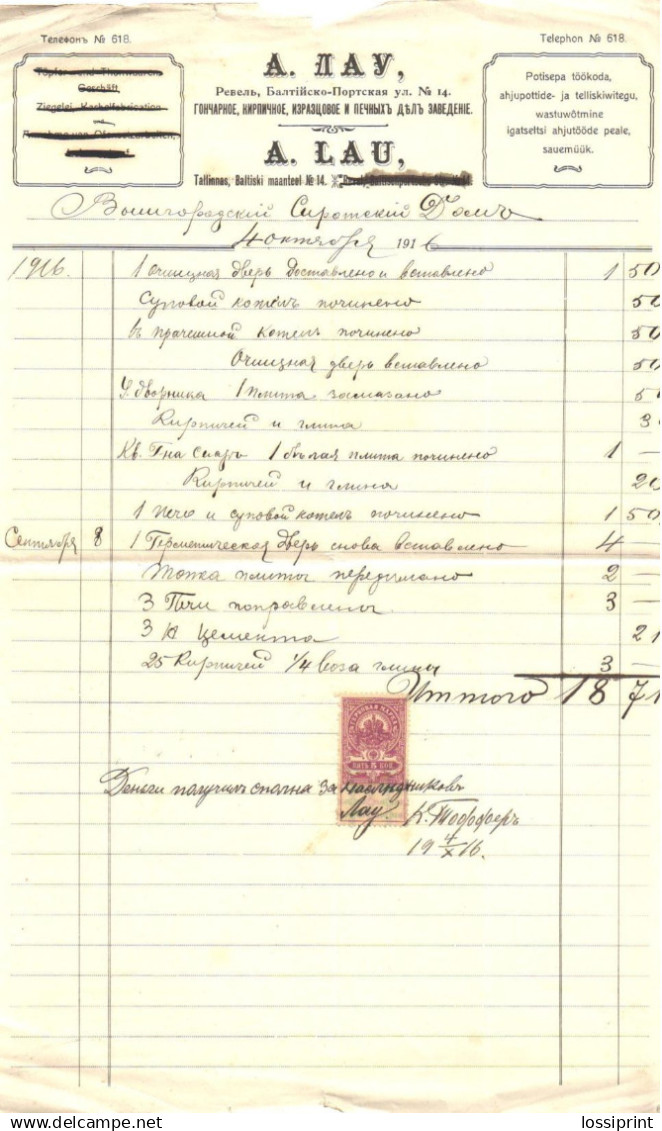 Телефонъ № 618.
Telephon № 618.
Töpfer- und Thonwaaren-
Geschäft,
Ziegelei, Kachelfabrication
und
А. ЛАУ,
Ревель, Балтійско-Портская ул. № 14.
ГОНЧАРНОЕ, КИРПИЧНОЕ, ИЗРАЗЦОВОЕ И ПЕЧНЫХЪ ДѢЛЪ ЗАВЕДЕНІЕ.
A. LAU,
Tallinnas, Baltiski maanteel № 14.
Potisepa töökoda,
ahjupottide- ja telliskiwitegu,
wastuwõtmine
igatseltsi ahjutööde peale,
sauemüük.
Вышгородскій Сиротскій Домъ
4 октября 1916
1916. 1 Очищная дверь доставлено и вставлено 1 50
Суповой котелъ починено 50
въ прачешной котелъ починено 50
Очищная дверь вставлено 50
У дворника 1 плита замазано
Кирпичей и глина
Кв. Гна 1 плита починено 1 —
Кирпичей и глина 20
1 Печь и суповой котелъ починено 1 50
Сентября 8 1 Герметическая дверь снова вставлено 4 —
Топка плиты передѣлано 2 —
3 Печи поправлены 3 —
3 Цемента 21
25 Кирпичей 1/4 воза глины 3 —
Иттого 18 71
ГЕРБОВАЯ МАРКА
ПЯТЬ 5 КОП.
Деньги получилъ сполна за наслѣдниковъ
Лау К. Тофферъ
19 4/X 16.
lossiprint